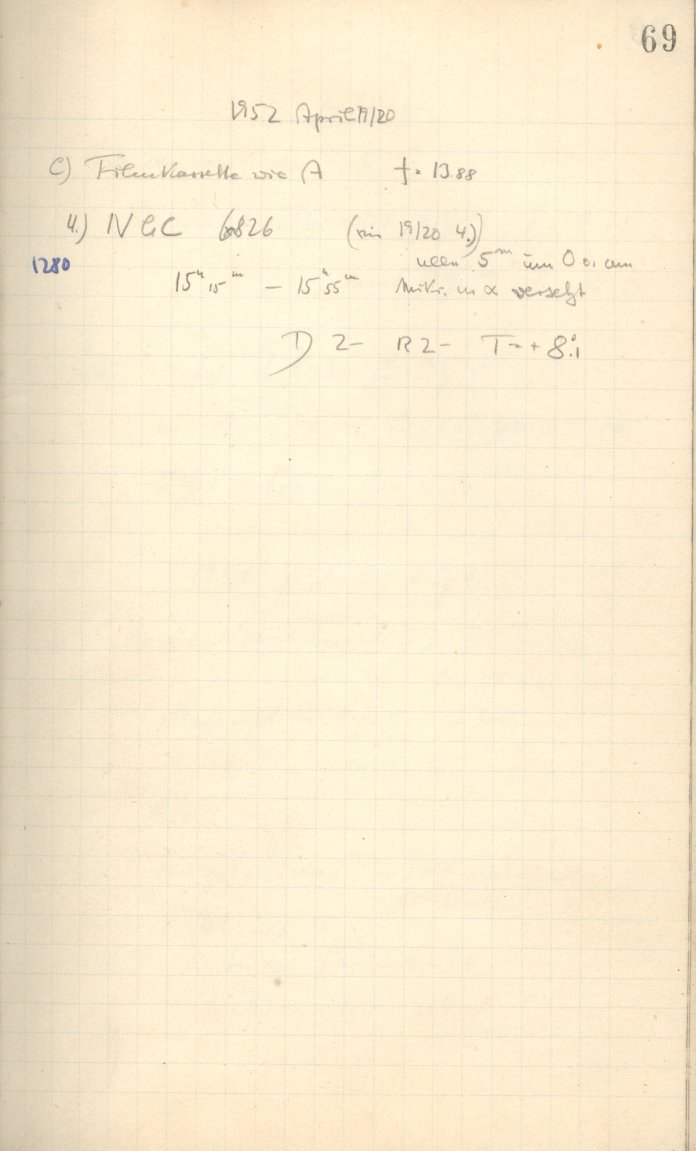 69
1952 April 19/20
C) Filmkassette wie A f = 13.88
4.) NGC 6826 (wie 19/20 4.)
1280
alle 5ᵐ um 0.01 mm
15ʰ15ᵐ – 15ʰ55ᵐ Mikr. in α versetzt
D 2– R 2– T = + 8.°1